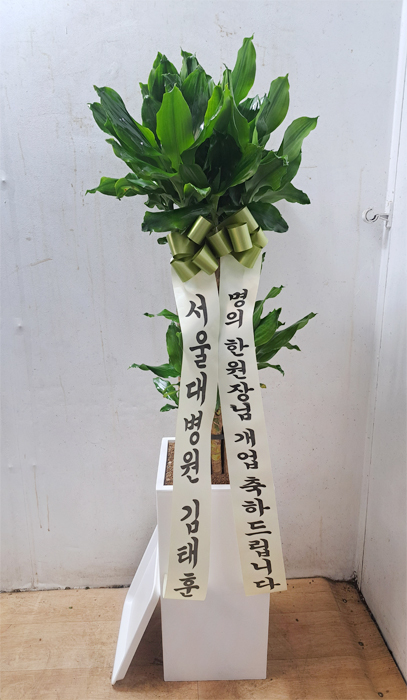 서울대병원 김태훈
명의 한원장님 개업 축하드립니다